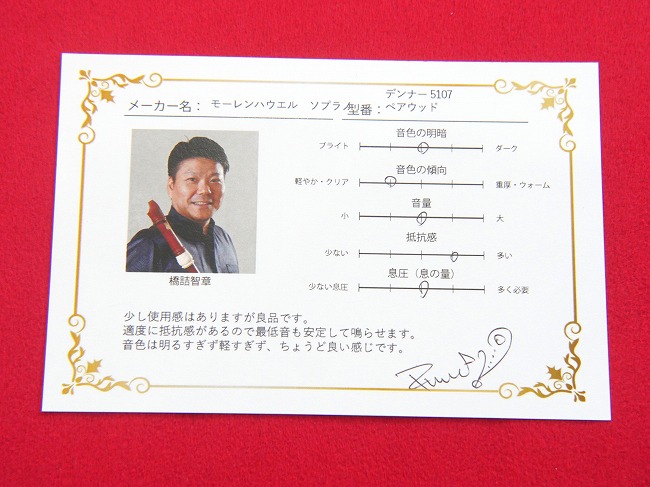 デンナー 5107
メーカー名： モーレンハウエル　ソプラノ 型番： ペアウッド
音色の明暗
ブライト ダーク
音色の傾向
軽やか・クリア 重厚・ウォーム
音量
小 大
抵抗感
少ない 多い
息圧（息の量）
少ない息圧 多く必要
橋詰智章
少し使用感はありますが良品です。
適度に抵抗感があるので最低音も安定して鳴らせます。
音色は明るすぎず軽すぎず、ちょうど良い感じです。